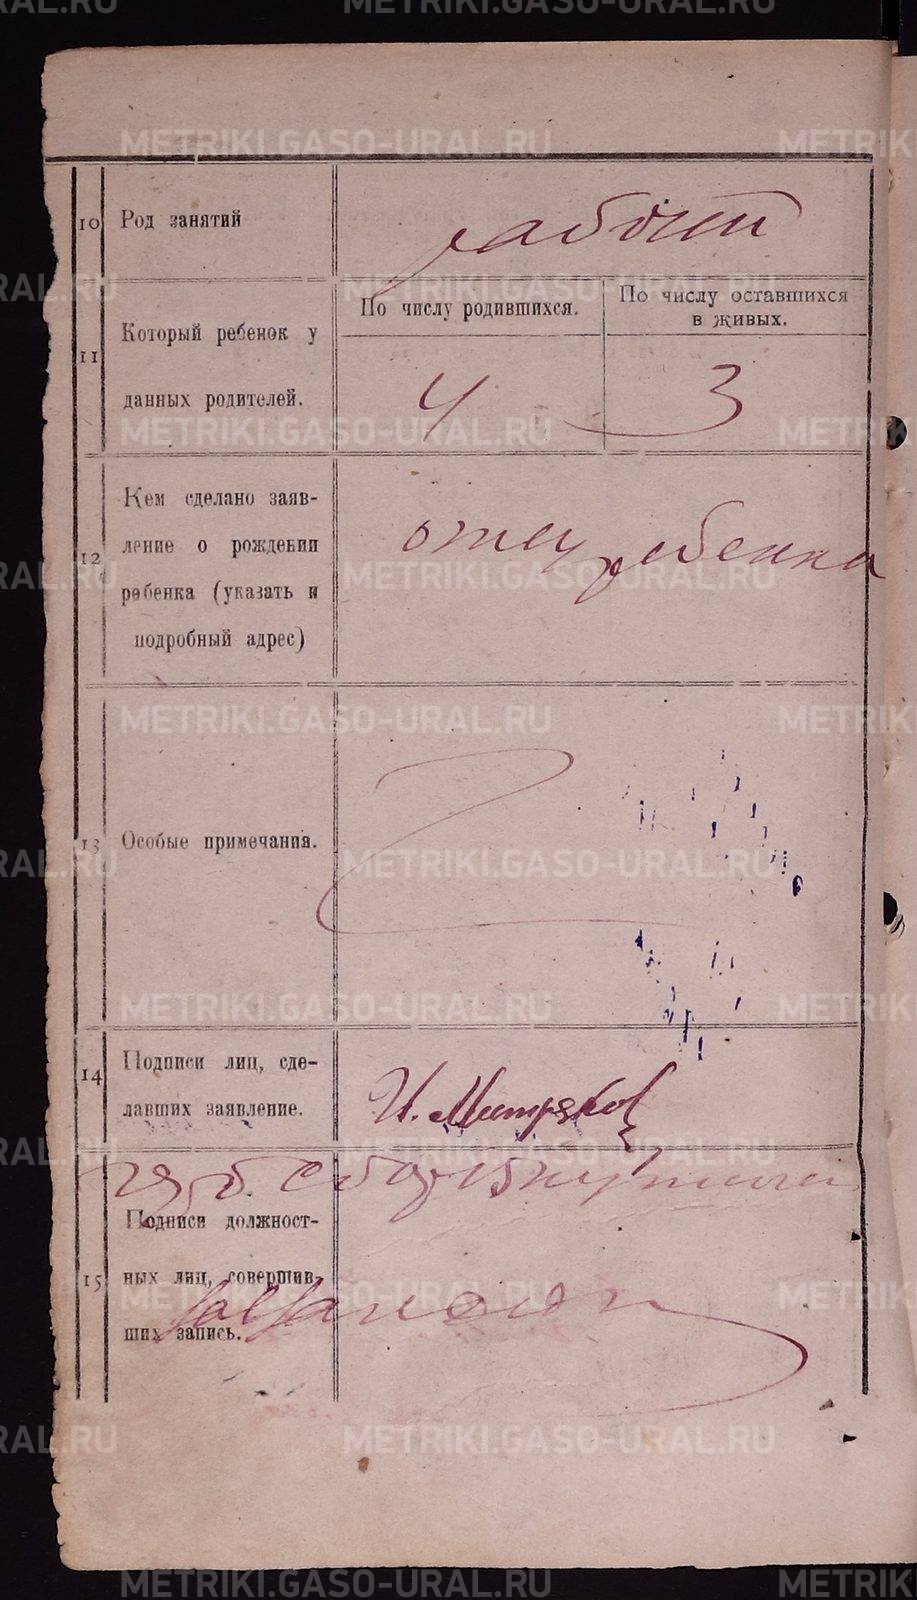 METRIKI.GASO-URAL.RU
10 Род занятий
рабочий
11 Который ребенок у
данных родителей.
По числу родившихся.
По числу оставшихся
в живых.
4
3
12 Кем сделано заяв-
ление о рождении
ребенка (указать и
подробный адрес)
отец ребенка
13 Особые примечания.
14 Подписи лиц, сде-
лавших заявление.
И. Митряков
15 Подписи должност-
ных лиц, совершив-
ших запись.